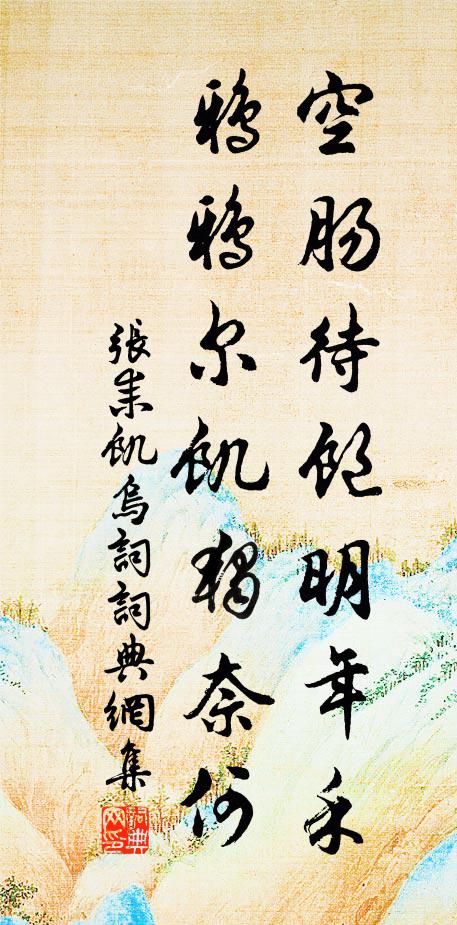 空肠待饱明年禾
鸦鸦尔饥独奈何
張耒飢烏詞詞典網集
詞典網印